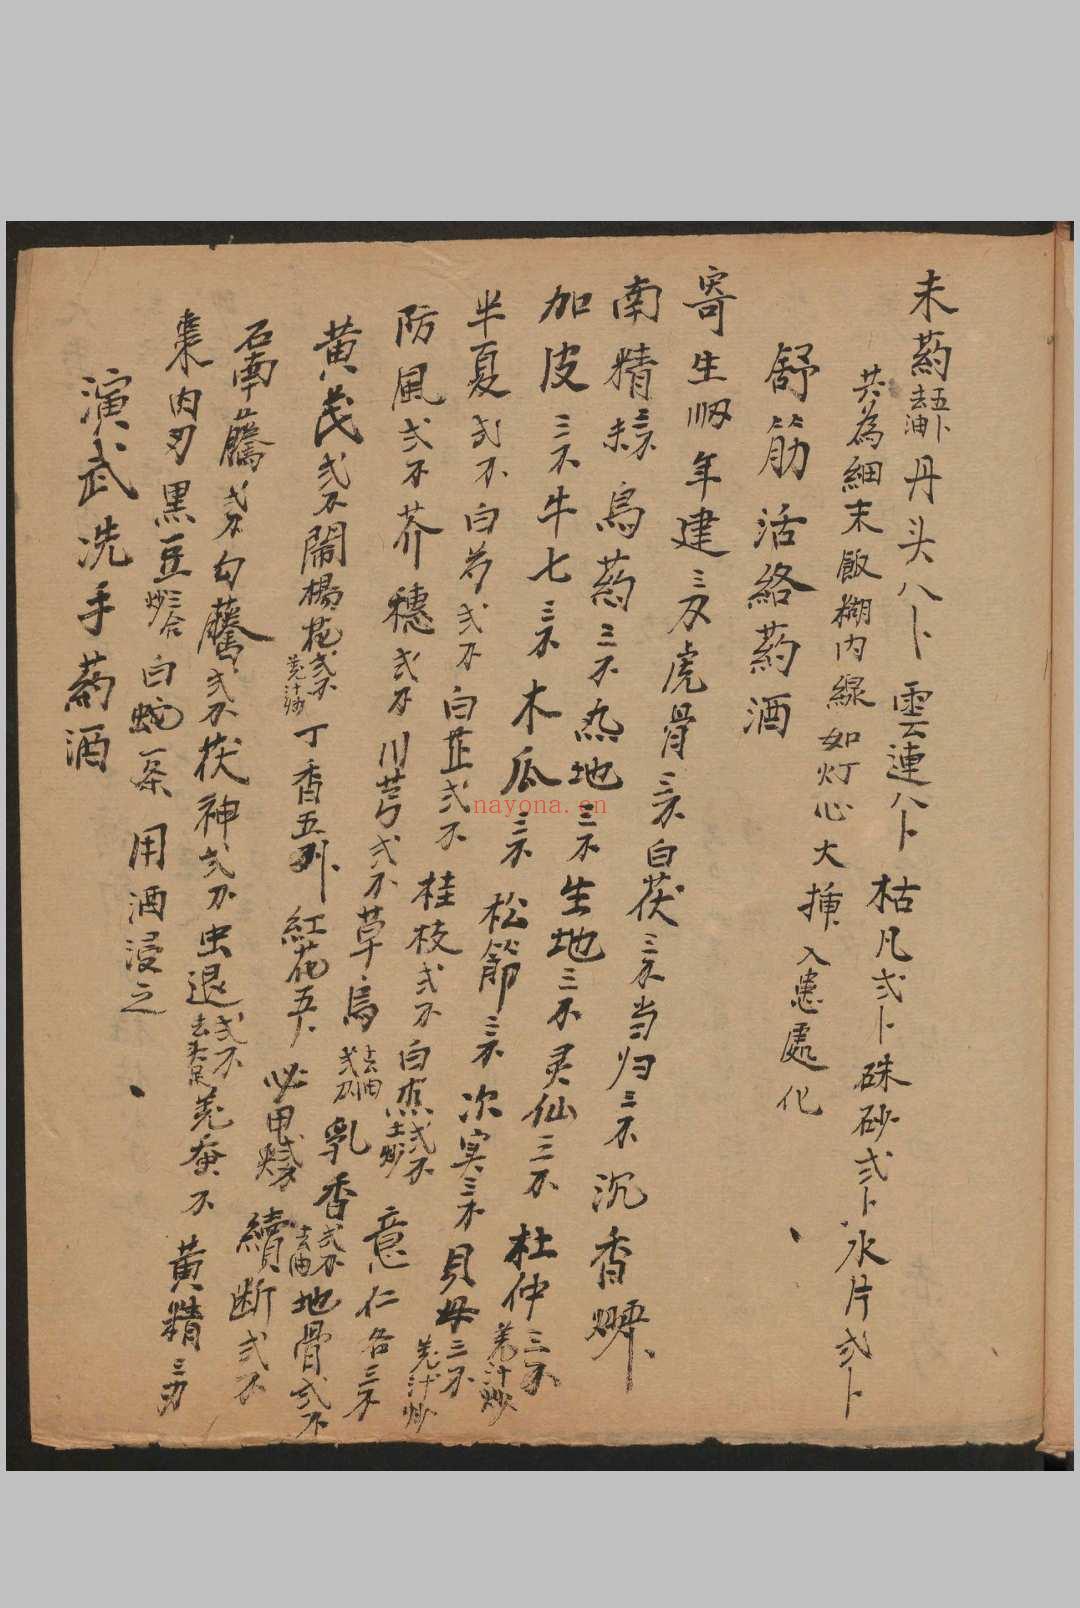 末药五卜去油丹头八卜雲連八卜枯凡弍卜硃砂弍卜氷片弍卜
共為細末飯糊内線如灯心大揷入患處化
舒筋活絡药酒
寄生 年建三刃虎骨三不白茯三不当归三不沉香
南精三不 烏药三不热地三不生地三不灵仙三不杜仲三不羌汁炒
加皮三不牛七三不木瓜三不松節三不次实三不貝母三不羌汁炒
半夏弍不白芍弍不白芷弍不桂枝弍不白 弍不土炒意仁各三不
防風弍不芥穗弍不川芎弍不草烏弍不去油乳香弍不去油地骨弍不
黄芪弍不鬧楊花弍不羌汁炒丁香五列紅花五卜必甲 續断弍不
石南藤弍不勾藤弍不茯神弍不虫退弍不去头足羌蚕不黄精三刃
棗肉刃黒豆三合炒白蛇一条用酒浸之
演武洗手药酒
nayona.cn